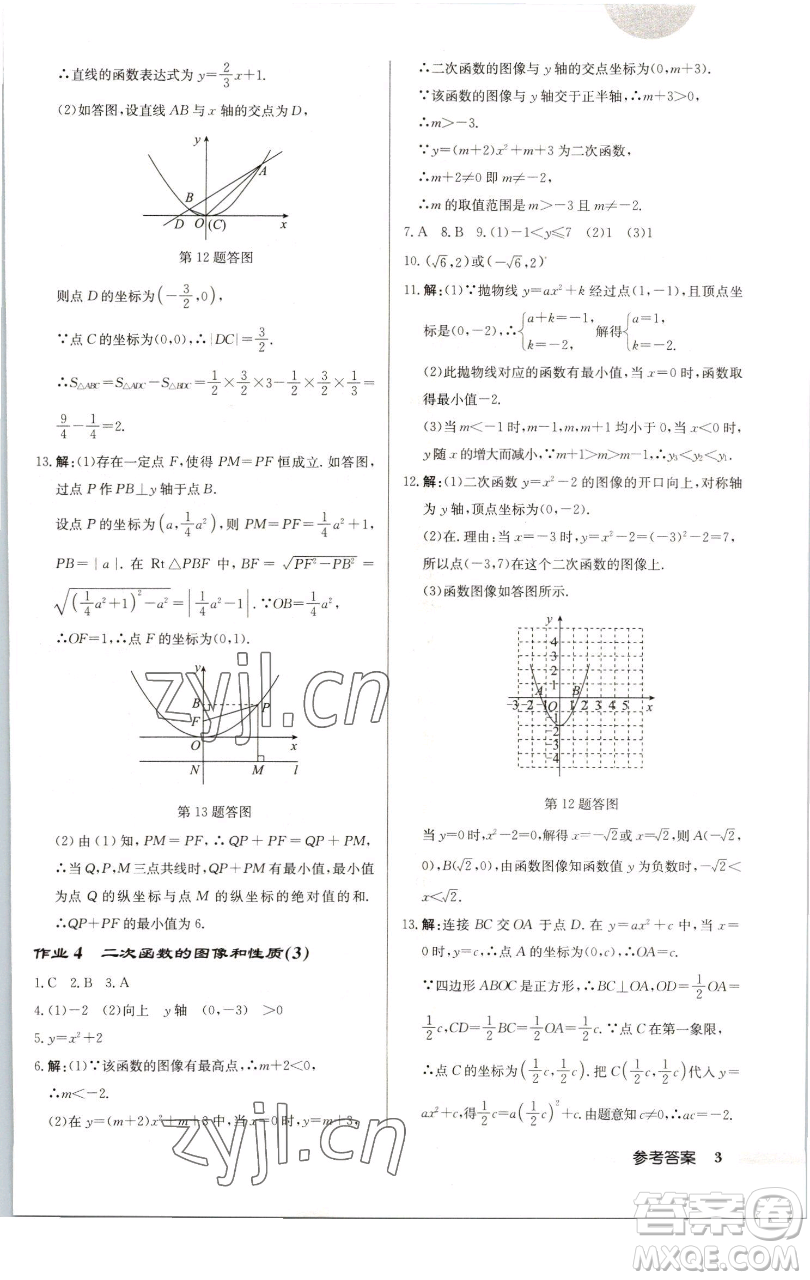 ∴直线的函数表达式为 y=2/3 x+1.
(2)如答图,设直线 AB 与 x 轴的交点为 D,
y
A
B
D O (C) x
第 12 题答图
则点 D 的坐标为(-3/2,0),
∵点 C 的坐标为(0,0),∴|DC|=3/2.
∴S△ABC=S△ADC-S△BDC=1/2×3/2×3-1/2×3/2×1/3=
9/4-1/4=2.
13. 解:(1)存在一定点 F,使得 PM=PF 恒成立. 如答图,
过点 P 作 PB⊥y 轴于点 B.
设点 P 的坐标为(a,1/4 a²),则 PM=PF=1/4 a²+1,
PB=|a|. 在 Rt△PBF 中,BF=√(PF²-PB²)=
√((1/4 a²+1)²-a²)=|1/4 a²-1|. ∵OB=1/4 a²,
∴OF=1,∴点 F 的坐标为(0,1).
y
B P
F
O x
N M l
第 13 题答图
(2)由(1)知,PM=PF,∴QP+PF=QP+PM,
∴当 Q,P,M 三点共线时,QP+PM 有最小值,最小值
为点 Q 的纵坐标与点 M 的纵坐标的绝对值的和.
∴QP+PF 的最小值为 6.
作业 4 二次函数的图像和性质(3)
1. C 2. B 3. A
4. (1)-2 (2)向上 y 轴 (0,-3) >0
5. y=x²+2
6. 解:(1)∵该函数的图像有最高点,∴m+2<0,
∴m<-2.
(2)在 y=(m+2)x²+m+3 中,当 x=0 时,y=m+3,
∴二次函数的图像与 y 轴的交点坐标为(0,m+3).
∵该函数的图像与 y 轴交于正半轴,∴m+3>0,
∴m>-3.
∵y=(m+2)x²+m+3 为二次函数,
∴m+2≠0 即 m≠-2,
∴m 的取值范围是 m>-3 且 m≠-2.
7. A 8. B 9. (1)-1<y≤7 (2)1 (3)1
10. (√6,2)或(-√6,2)
11. 解:(1)∵抛物线 y=ax²+k 经过点(1,-1),且顶点坐
标是(0,-2),∴{a+k=-1, k=-2, 解得{a=1, k=-2.
(2)此抛物线对应的函数有最小值,当 x=0 时,函数取
得最小值-2.
(3)当 m<-1 时,m-1,m,m+1 均小于 0,当 x<0 时,
y 随 x 的增大而减小. ∵m+1>m>m-1,∴y₃<y₂<y₁.
12. 解:(1)二次函数 y=x²-2 的图像的开口向上,对称轴
为 y 轴,顶点坐标为(0,-2).
(2)在. 理由:当 x=-3 时,y=x²-2=(-3)²-2=7,
所以点(-3,7)在这个二次函数的图像上.
(3)函数图像如答图所示.
y
4
3
2
1
A B
-3 -2 -1 O 1 2 3 4 5 x
-1
-2
-3
-4
第 12 题答图
当 y=0 时,x²-2=0,解得 x=-√2或 x=√2,则 A(-√2,
0),B(√2,0). 由函数图像知函数值 y 为负数时,-√2<
x<√2.
13. 解:连接 BC 交 OA 于点 D. 在 y=ax²+c 中,当 x=
0 时,y=c,∴点 A 的坐标为(0,c),∴OA=c.
∵四边形 ABOC 是正方形,∴BC⊥OA,OD=1/2 OA=
1/2 c,CD=1/2 BC=1/2 OA=1/2 c. ∵点 C 在第一象限,
∴点 C 的坐标为(1/2 c,1/2 c). 把 C(1/2 c,1/2 c)代入 y=
ax²+c,得 1/2 c=a(1/2 c)²+c. 由题意知 c≠0,∴ac=-2.
参考答案 3
zyjl.cn
zyjl.cn
答案圈
MXQE.COM